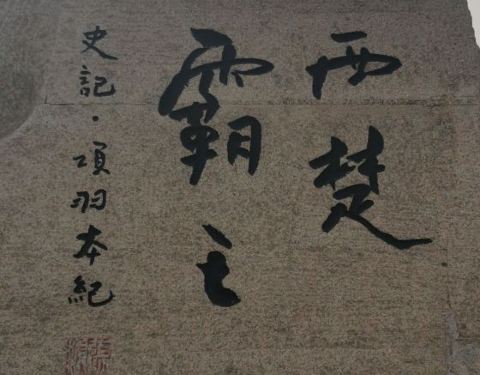 西楚
霸主
史記·項羽本紀